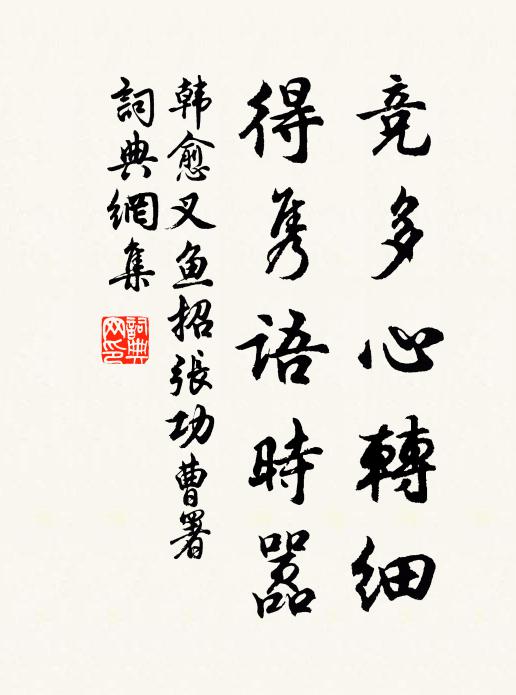 竞多心轉细
得隽語時嚣
韩愈叉鱼招張功曹署
詞典網集
詞典网印